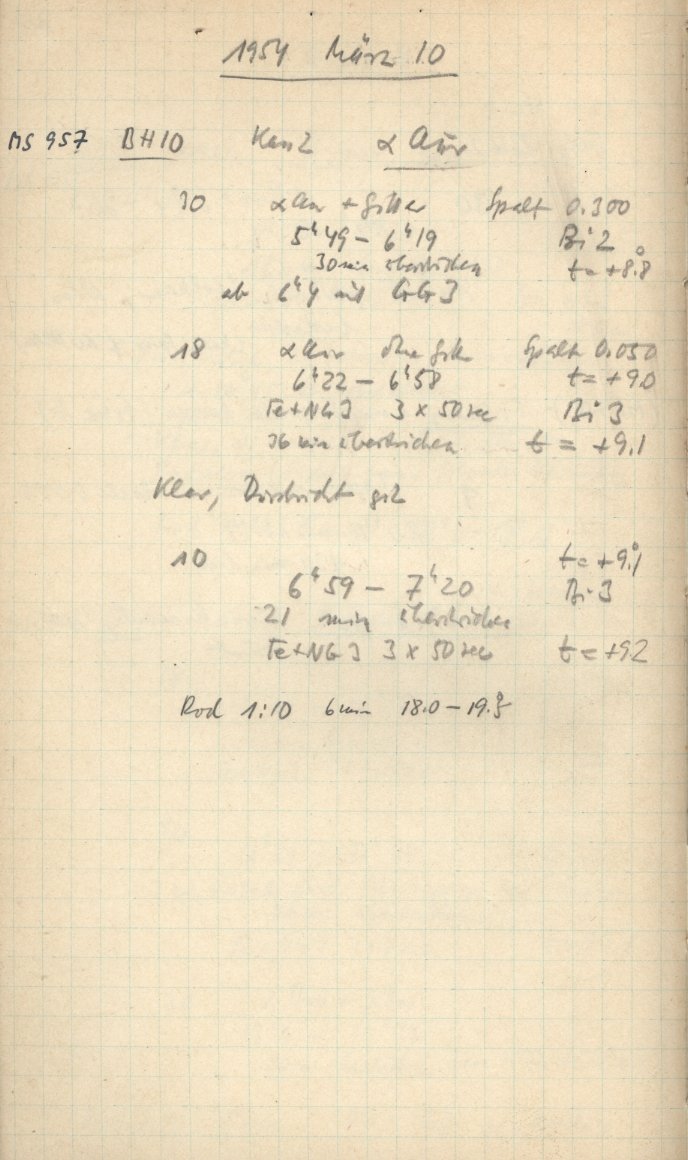 1954 März 10
MS 957 BH10 Kam 2 α Aur
30 α Aur + Gitter Spalt 0.300
5ʰ49 – 6ʰ19 Bi 2
30 min überstrichen t = +8°.8
ab 6ʰ4 mit GG3
18 α Aur ohne Gitt Spalt 0.050
6ʰ22 – 6ʰ58 t = +9.0
Fe+NG3 3 x 50 sec Bi 3
36 min überstrichen t = +9.1
Klar, Durchsicht gut
10 t = +9°.1
6ʰ59 – 7ʰ20 Bi 3
21 min überstrichen
Fe+NG3 3 x 50 sec t = +9.2
Rod 1:10 6 min 18.0 – 19.5